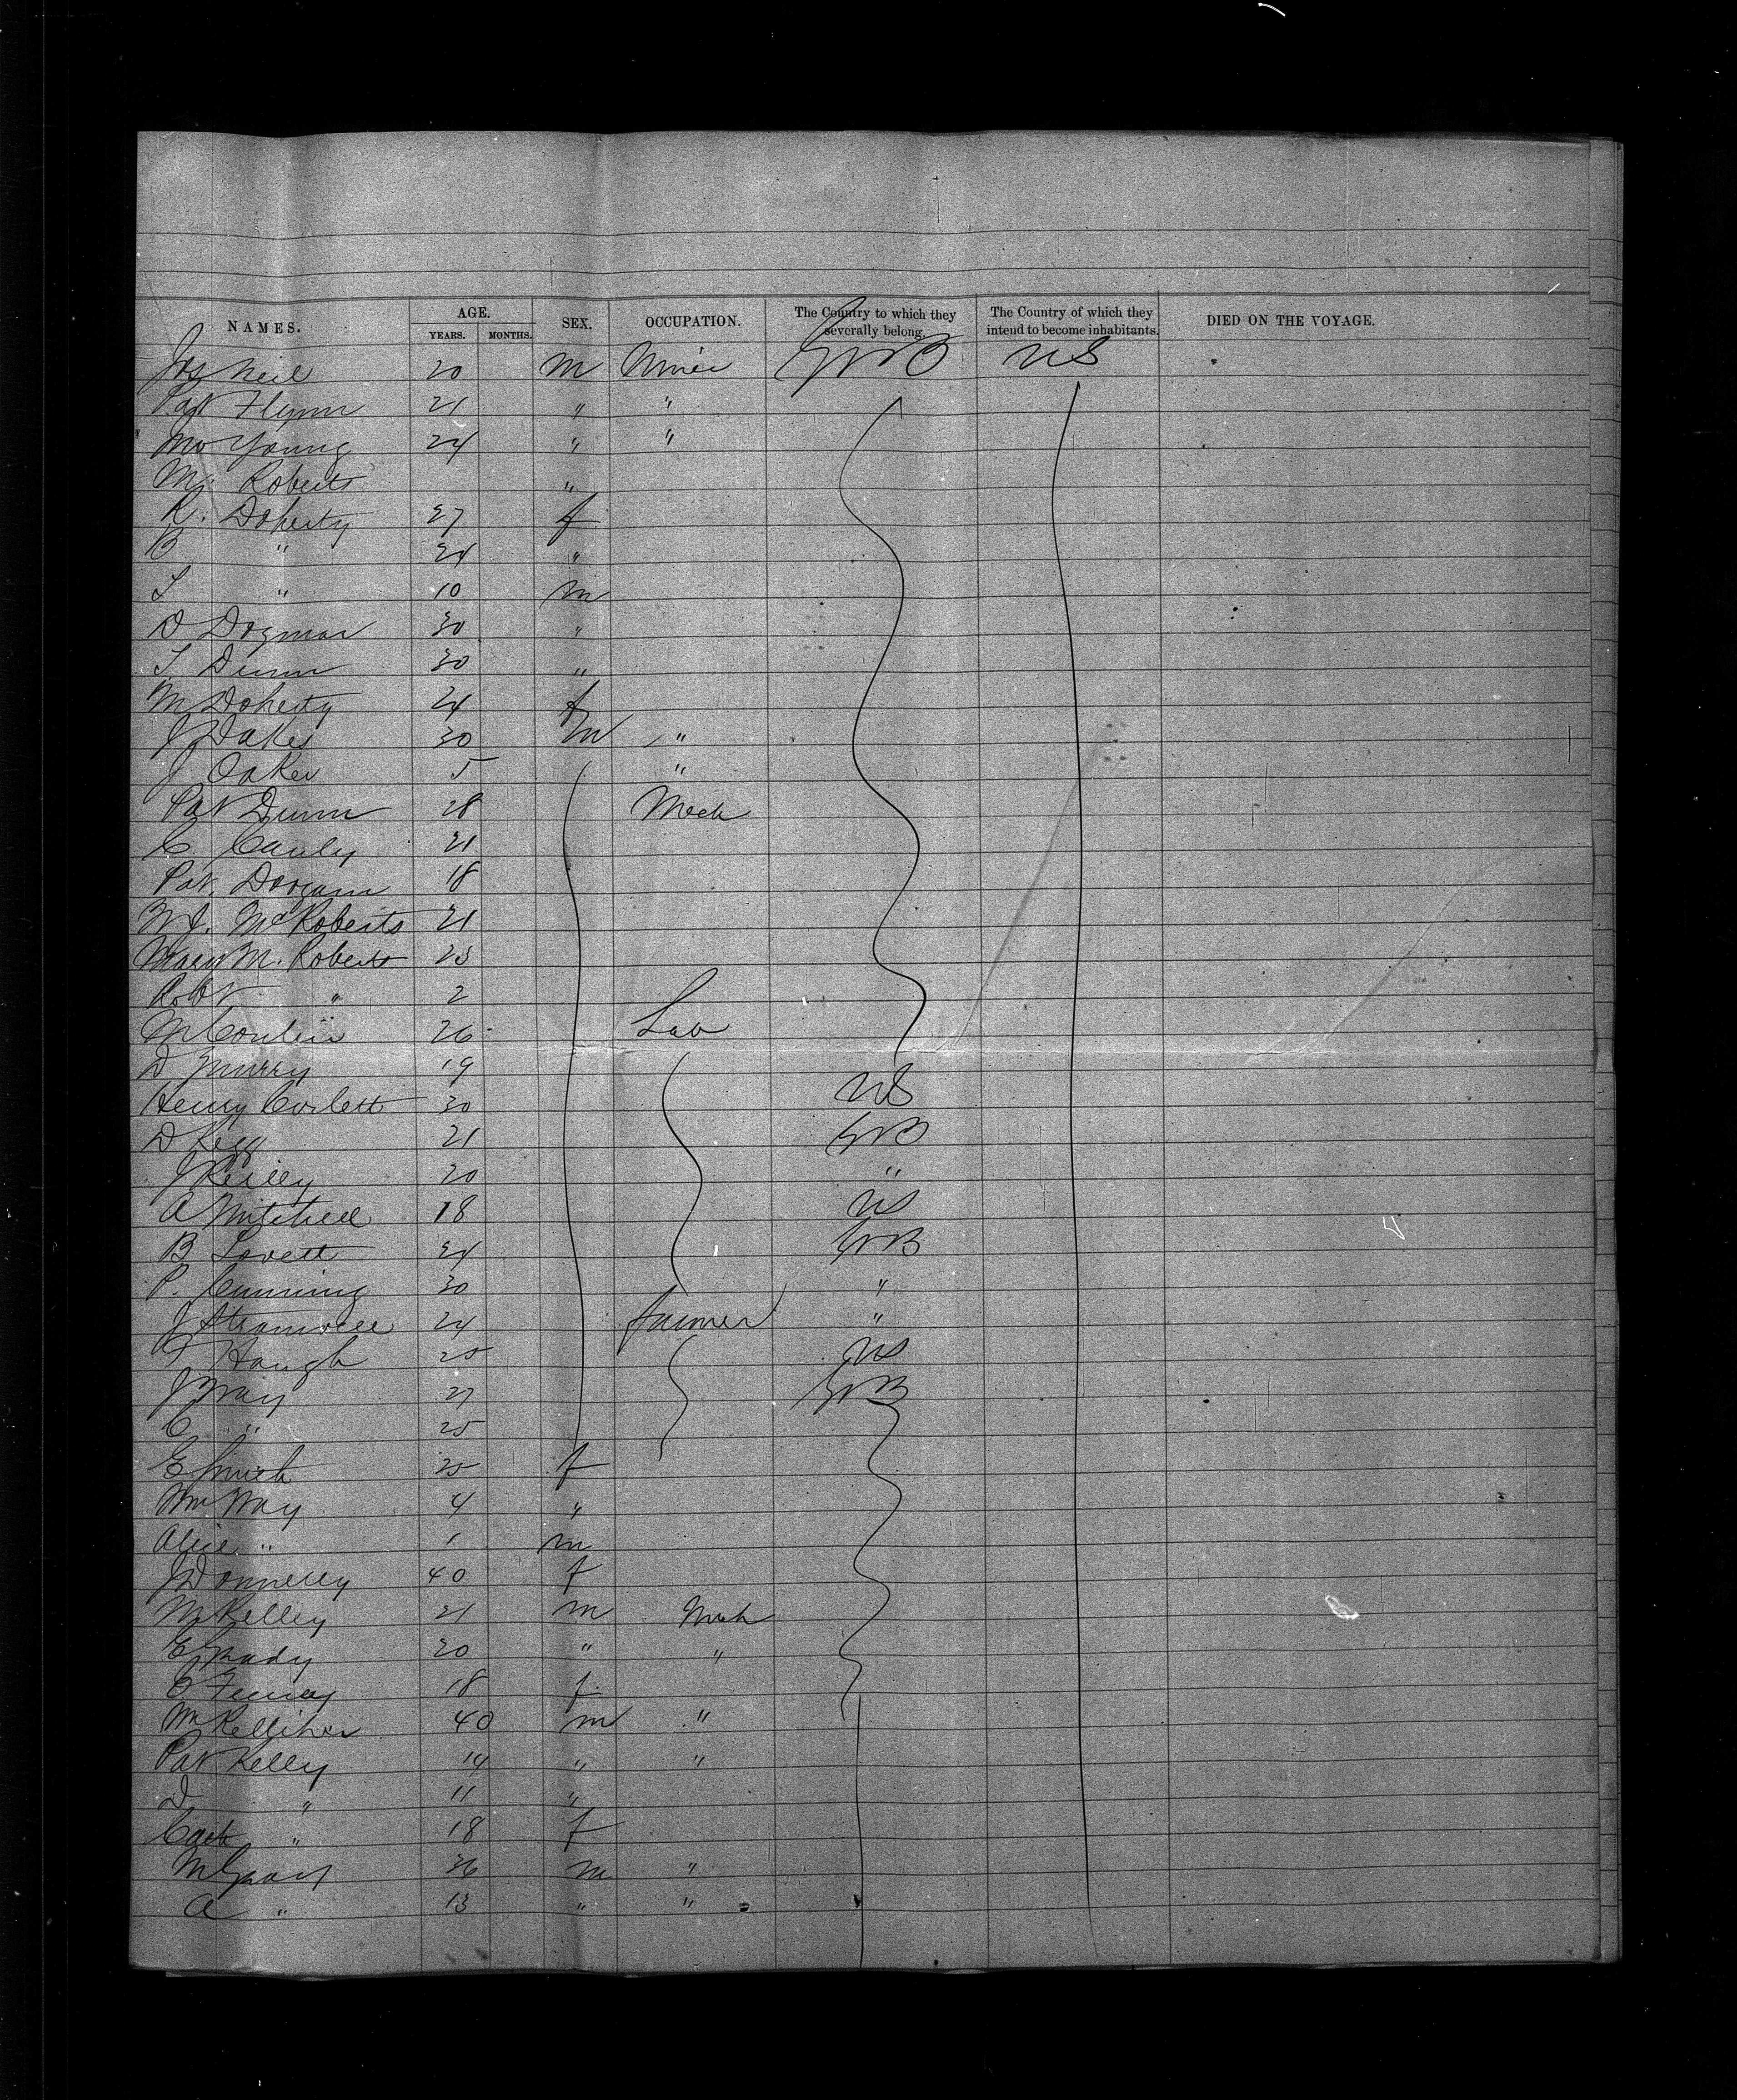 NAMES. AGE. YEARS. MONTHS. SEX. OCCUPATION. The Country to which they severally belong. The Country of which they intend to become inhabitants. DIED ON THE VOYAGE.
Jas Neil 20 m Miner GrB US
Pat Flynn 21 " "
Young 24 " "
Mc Roberts "
R. Doherty 27 f
B " 24 "
T " 10 m
D Dogman 30 "
T. Dunn 30 "
M Doherty 24 f
J Oakes 30 m "
J Oakes 5 "
Pat Dunn 28 Mech
C. Cauly 21
Pat. Doogan 18
W J. McRoberts 21
Mary Mc Roberts 23
Robt " 2
M Conlin 26 Lab
D Murry 19
Henry Corlett 30 US
D Kegg 21 GrB
J Reiley 20 "
A Mitchell 18 US
B Lovett 24 GrB
P. Cunning 30 "
J Stramwell 24 farmer "
Haugh 25 US
J Way 27 GrB
C " 25
E Smith 25 f
Wm Way 4 "
Alice " 1 m
J Donnelly 40 f
M Kelley 21 m Mech
E Grady 20 " "
Feeney 18 f
M Kelliher 40 m "
Pat Kelly 14 " "
D " 11 "
Cath " 18 f
M Grant 36 m "
A " 13 " "